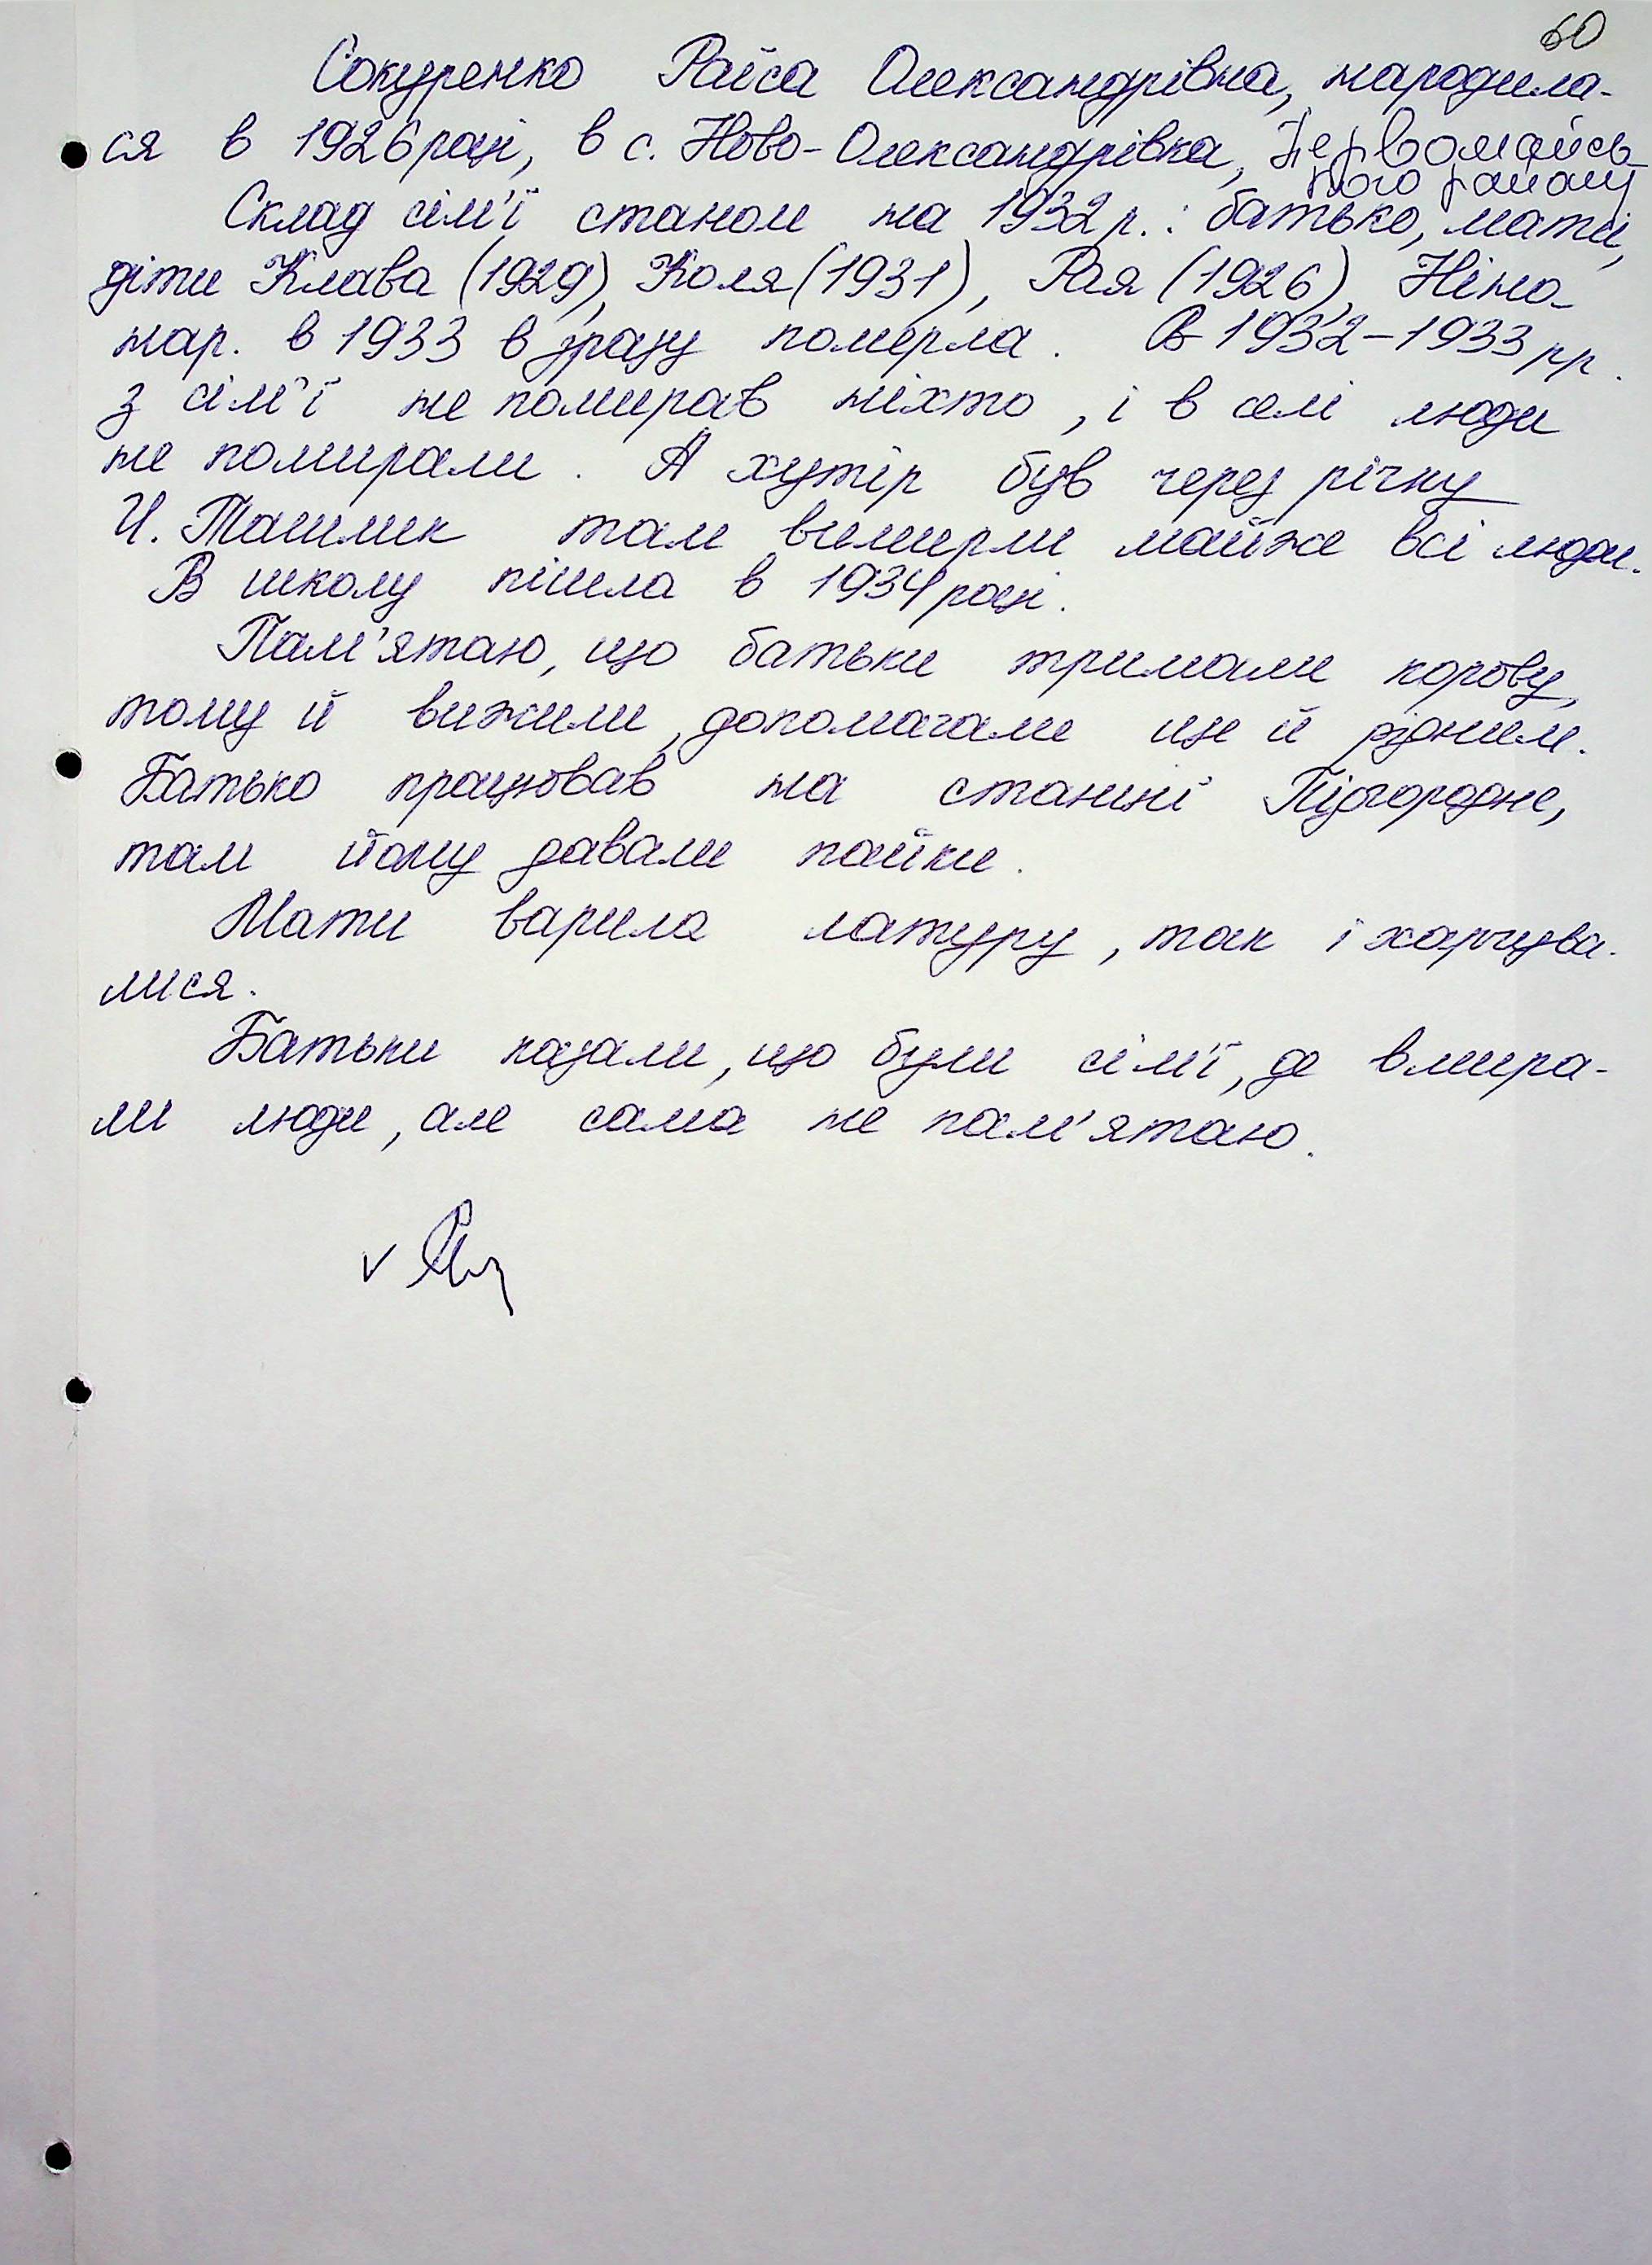 60
Сокуренко Раїса Олександрівна, народила-
ся в 1926 році, в с. Ново-Олександрівка, Первомайсь-
кого району
Склад сім'ї станом на 1932 р.: батько, мати,
діти Клава (1929), Коля (1931), Рая (1926), Ніна-
нар. в 1933 в зразу померла. В 1932-1933 рр.
з сім'ї не помирав ніхто, і в селі люди
не помирали. А хутір був через річку
Ч. Ташлик там вимерли майже всі люди.
В школу пішла в 1934 році.
Пам'ятаю, що батьки тримали корову,
тому й вижили, допомагали ще й рідним.
Батько працював на станції Підгородне,
там йому давали пайки.
Мати варила затуру, так і харчува-
лися.
Батьки казали, що були сім'ї, де вмира-
ли люди, але сама не пам'ятаю.